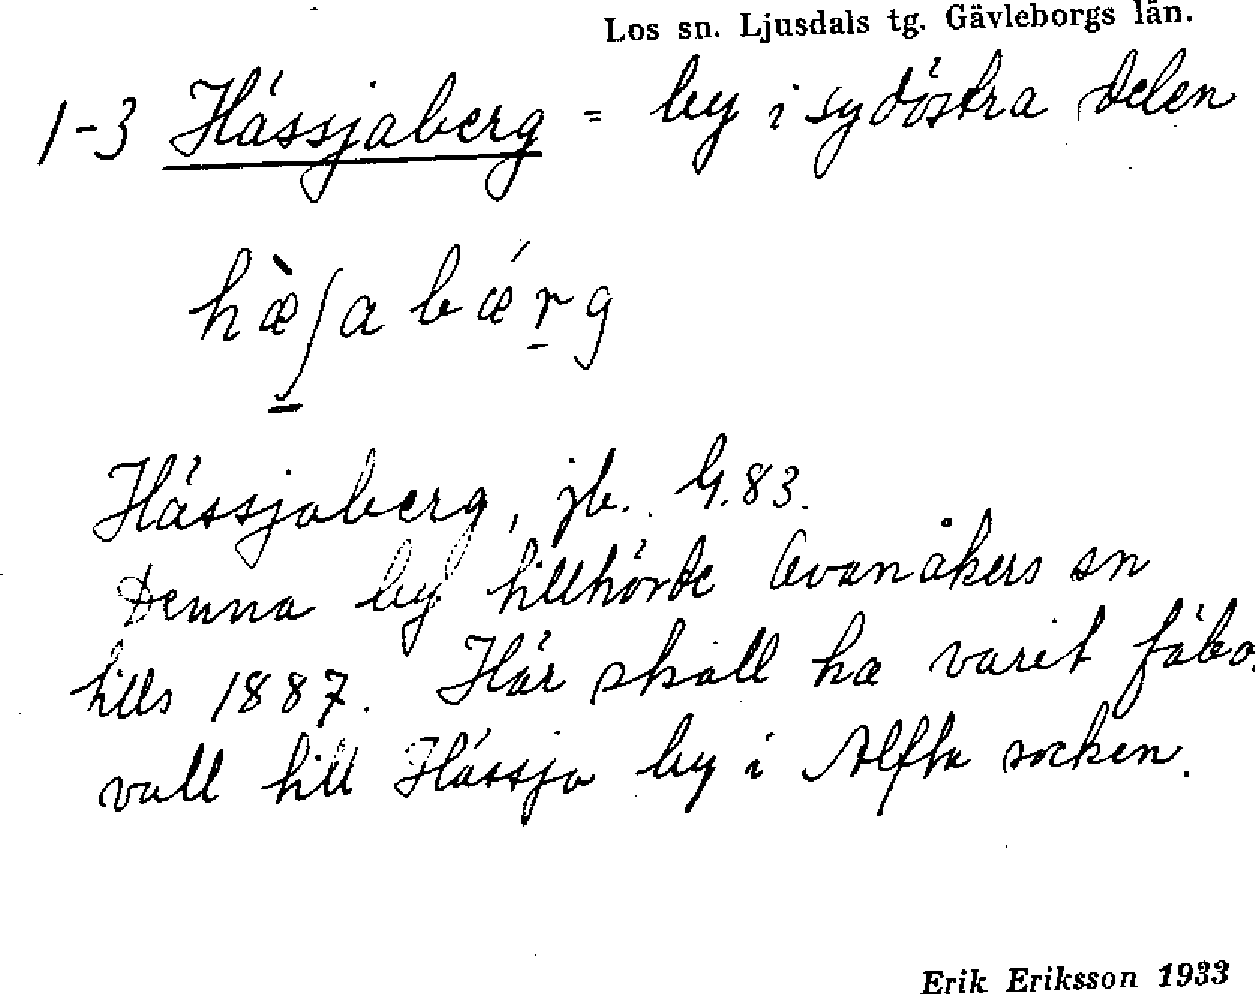 Los sn. Ljusdals tg. Gävleborgs län.
1-3 Hässjaberg = by i sydöstra delen
hæ̀ʃabǽrg
Hässjaberg, jb. G.83.
Denna by tillhörde Ovanåkers sn
tills 1887. Här skall ha varit fäbo
vall till Hässja by i Alfta socken.
Erik Eriksson 1933